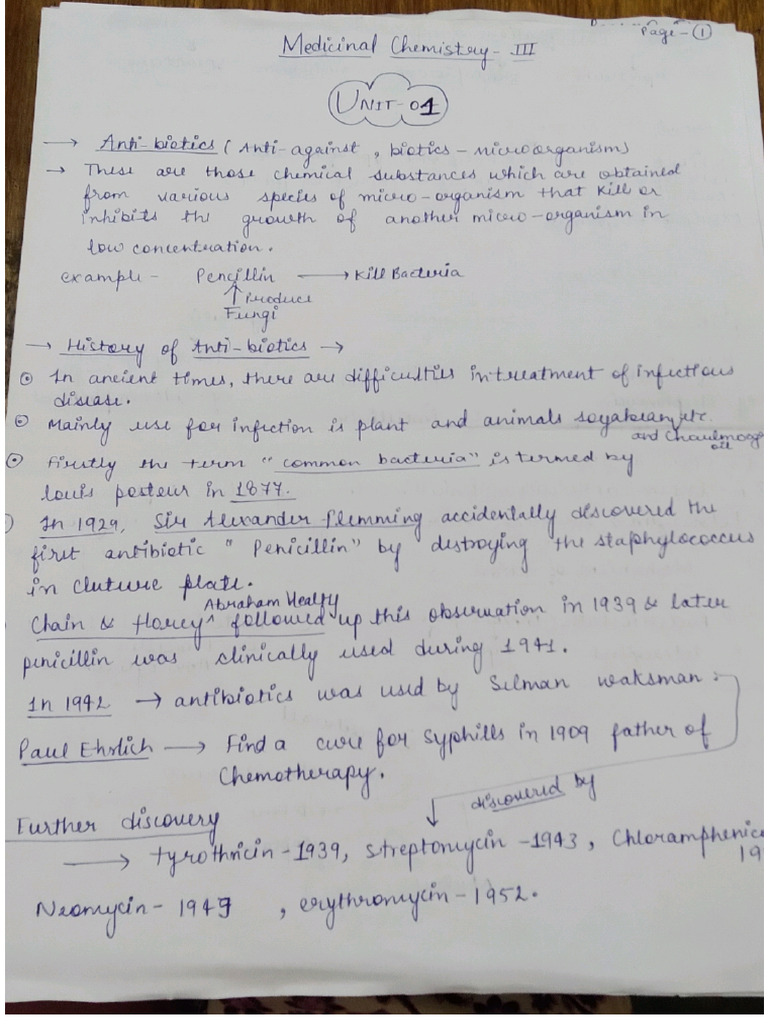 Page - 1
Medicinal Chemistry - III
UNIT-01
→ Anti-biotics (Anti-against, biotics - microorganism)
→ These are those chemical substances which are obtained
from various species of micro-organism that kill or
inhibits the growth of another micro-organism in
low concentration.
example - Pencillin → Kill Bacteria
↑ Produce
Fungi
→ History of Anti-biotics →
⊙ In ancient times, there are difficulties in treatment of infectious
disease.
⊙ Mainly use for infection is plant and animals soyabean etc.
and Chaulmoog
oil
⊙ Firstly the term "common bacteria" is termed by
louis posteur in 1877.
In 1929, Sir Alexander Flemming accidentally discovered the
first antibiotic "Penicillin" by destroying the staphylococcus
in cluture plate.
Abraham Healty
Chain & florey ^ followed up this observation in 1939 & later
penicillin was clinically used during 1941.
In 1942 → antibiotics was used by Selman waksman.
Paul Ehrlich → Find a cure for syphills in 1909 father of
Chemotherapy.
discovered by
Further discovery
→ tyrothricin - 1939, streptomycin - 1943, Chloramphenic
19
Neomycin - 1949, erythromycin - 1952.